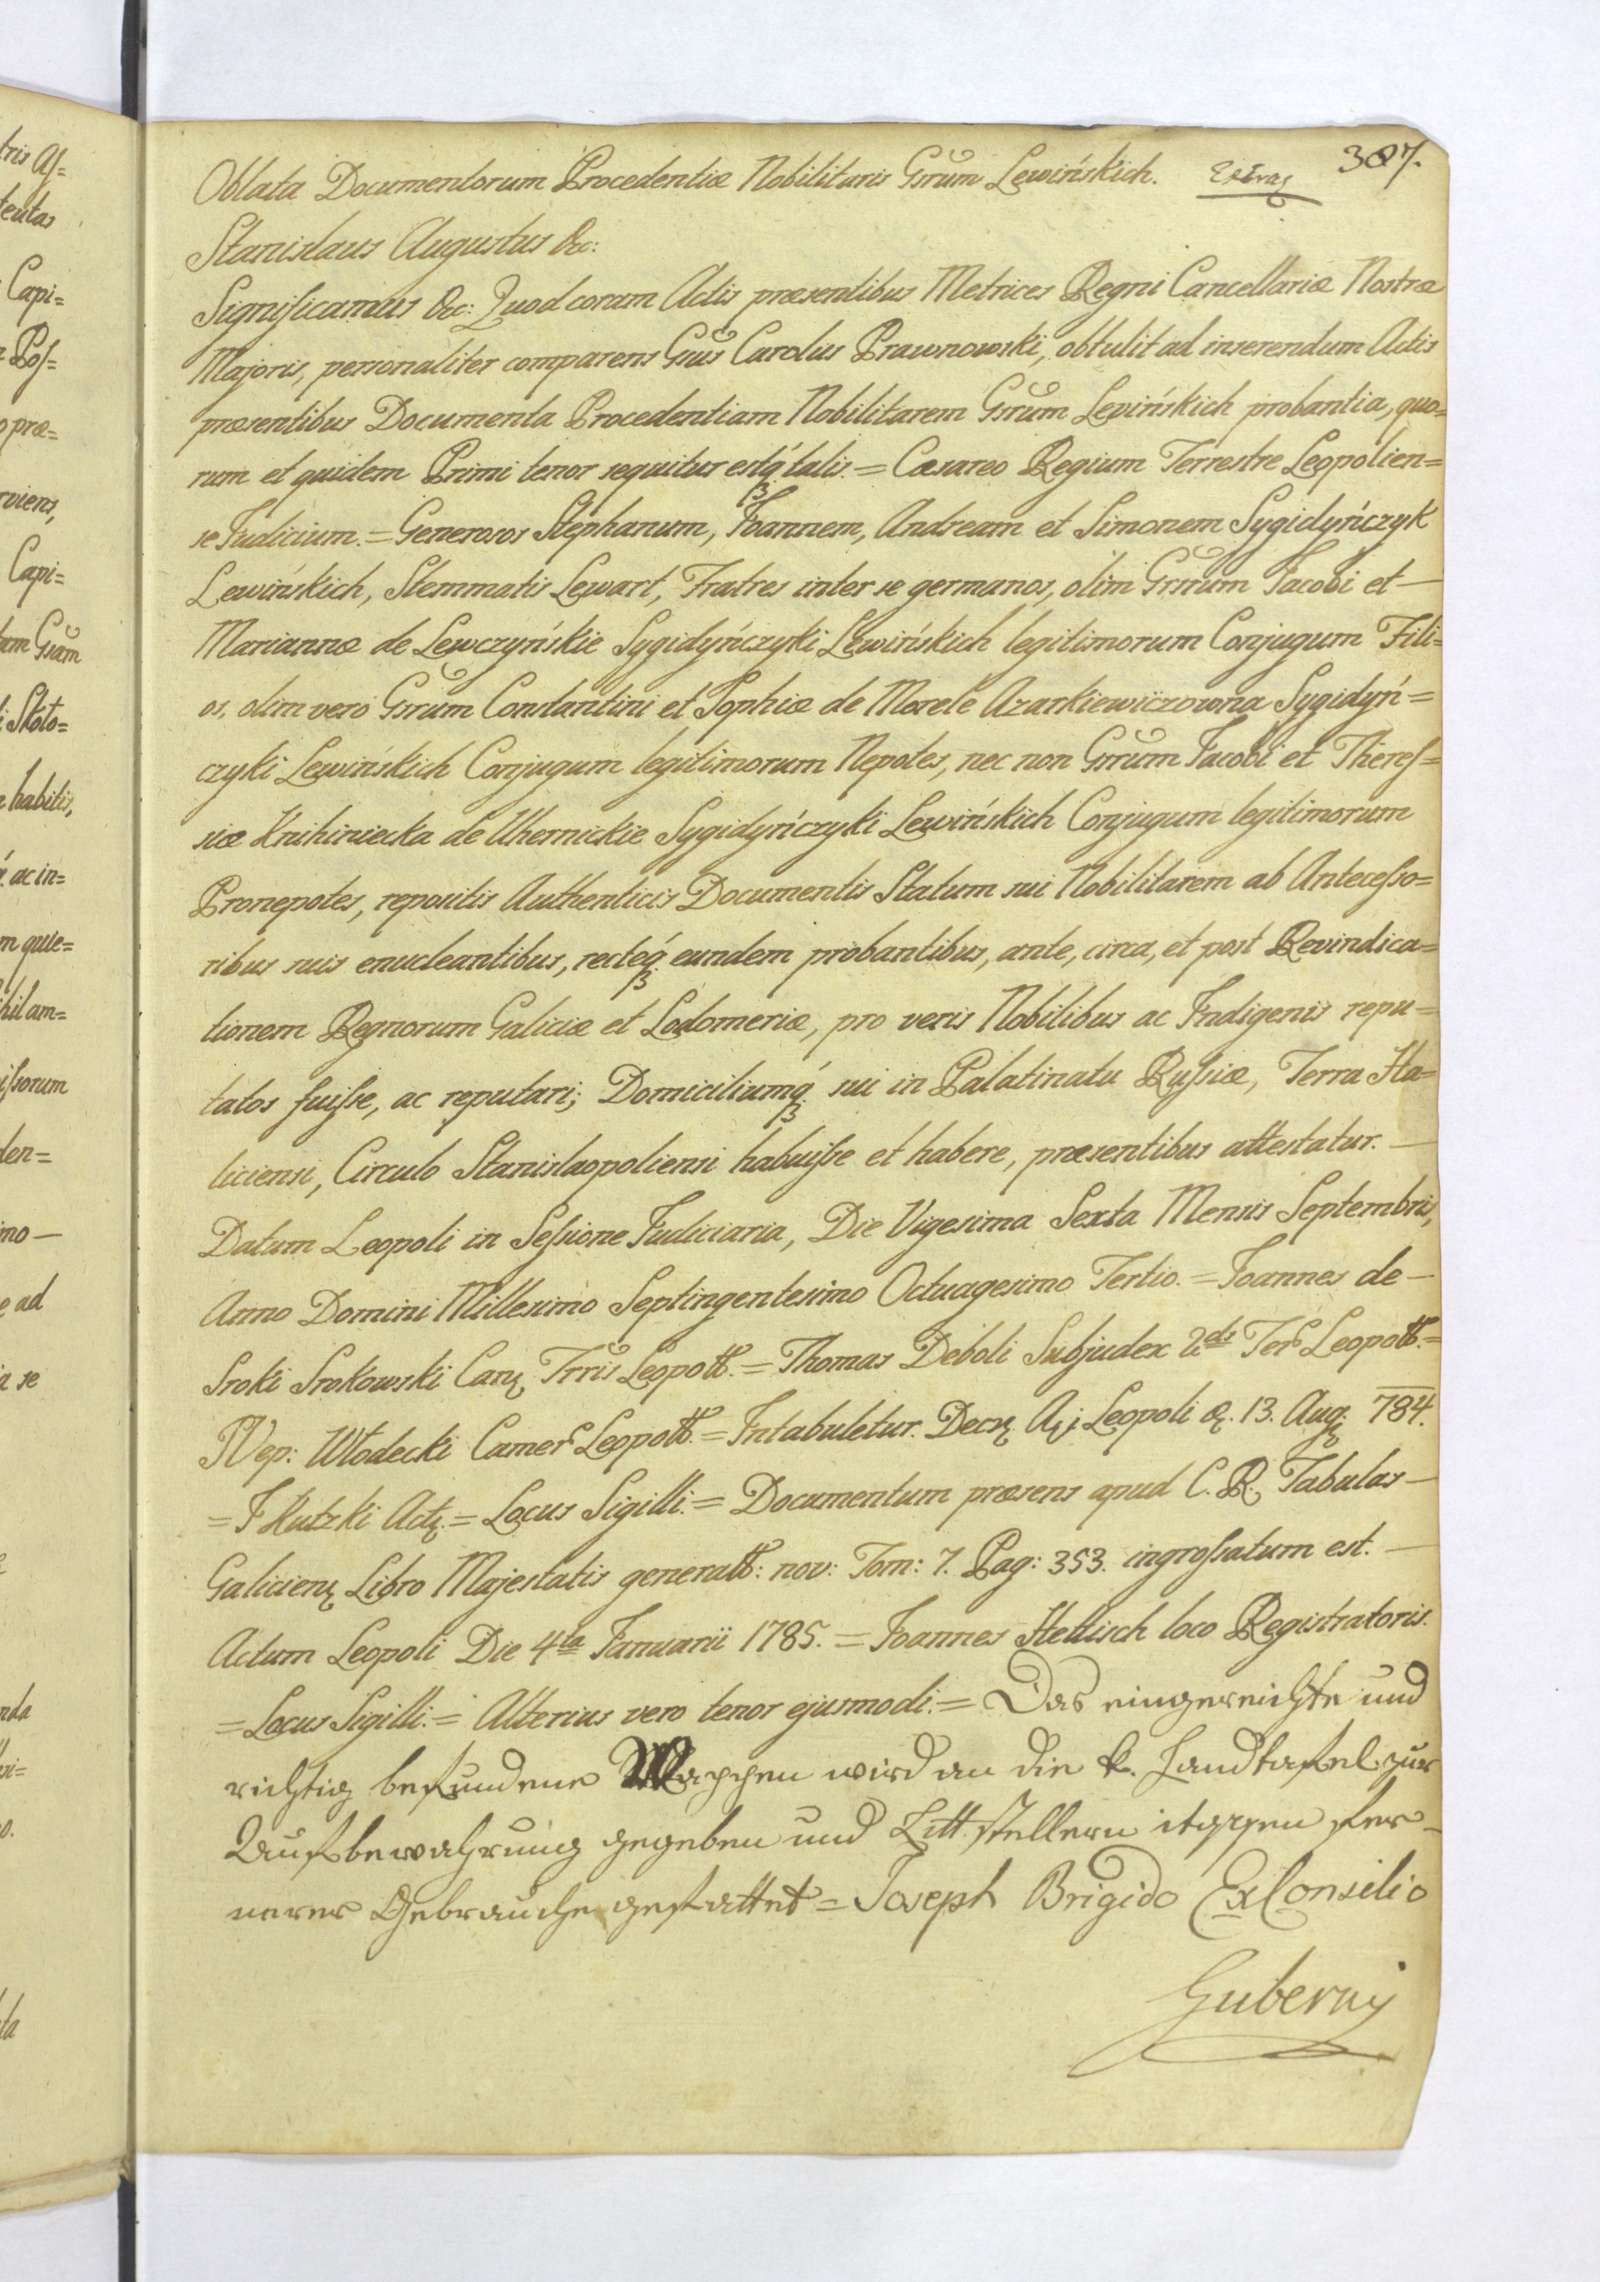 307.
Oblata Documentorum Procedentiæ Nobilitaris Grum Lewińskich. Extrad
Stanislaus Augustus &c:
Significamus &c: Quod coram Actis præsentibus Metrices Regni Cancellariæ Nostræ
Majoris, personaliter comparens Gsus Carolus Prawnowski, obtulit ad inserendum Actis
præsentibus Documenta Procedentiam Nobilitarem Grum Levińskich probantia, quo=
rum et quidem Primi tenor sequitur estq́ꝫ talis. = Cæsareo Regium Terrestre Leopolien=
se Judicium. = Generosos Stephanum, Joannem, Andream et Simonem Sygidyńczyk
Lewińskich, Stemmatis Lewart, Fratres inter se germanos, olim Grrum Jacobi et —
Mariannæ de Lewczyńskie Sygidyńczyki Lewińskich legitimorum Conjugum Fili=
os, olim vero Gsrum Constantini et Sophiæ de Morele Azarkiewiczowna Sygidyń=
czyki Lewińskich Conjugum legitimorum Nepotes, nec non Grrum Jacobi et Theres=
siæ Knihiniecka de Uhernickie Sygidyńczyki Lewińskich Conjugum legitimorum
Pronepotes, repositis Authenticis Documentis Statum sui Nobilitarem ab Antecesso=
ribus suis enucleantibus, recteq́ꝫ eundem probantibus, ante, circa, et post Revindica=
tionem Regnorum Galiciæ et Lodomeriæ, pro veris Nobilibus ac Indigenis repu=
tatos fuisse, ac reputari; Domiciliumq́ꝫ sui in Palatinatu Russiæ, Terra Ha=
liciensi, Circulo Stanislaopoliensi habuisse et habere, præsentibus attestatur. —
Datum Leopoli in Sessione Judiciaria, Die Vigesima Sexta Mensis Septembris,
Anno Domini Millesimo Septingentesimo Octuagesimo Tertio. = Joannes de —
Sroki Srokowski Can Trris Leopoll. = Thomas Deboli Subjudex 2dus Ter Leopoll. =
Nep: Włodecki Camer Leopoll. = Intabuletur. Leopoli 13. Aug 784.
= Kutzki Act. = Locus Sigilli. = Documentum præsens apud C. R. Tabulas —
Galicien Libro Majestatis generall: nov: Tom: 7. Pag: 353. ingrossatum est. —
Actum Leopoli Die 4ta Januarii 1785. = Joannes Hellisch loco Registratoris.
= Locus Sigilli. = Alterius vero tenor ejusmodi. = Das eingereichte und
richtig befundene Wappen wird an die k. Landtafel zur
Aufbewahrung gegeben und Bittstellern deßen fer=
nerer Gebrauche gestattet = Joseph Brigido Ex Consilio
Gubernij